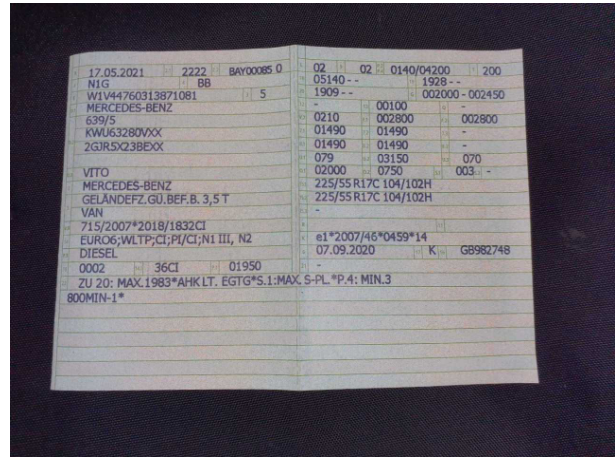 17.05.2021 2222 BAY00085 0
N1G BB
W1V44760313871081 5
MERCEDES-BENZ
639/5
KWU63280VXX
2GJR5X23BEXX
VITO
MERCEDES-BENZ
GELÄNDEFZ.GÜ.BEF.B. 3,5 T
VAN
715/2007*2018/1832CI
EURO6;WLTP;CI;PI/CI;N1 III, N2
DIESEL
0002 36CI 01950
ZU 20: MAX.1983*AHK LT. EGTG*S.1:MAX. S-PL.*P.4: MIN.3
800MIN-1*
02 02 0140/04200 200
05140 - - 1928 - -
1909 - - 002000 - 002450
- 00100 -
0210 002800 002800
01490 01490 -
01490 01490 -
079 03150 070
02000 0750 003 -
225/55 R17C 104/102H
225/55 R17C 104/102H
-
e1*2007/46*0459*14
07.09.2020 K GB982748
-